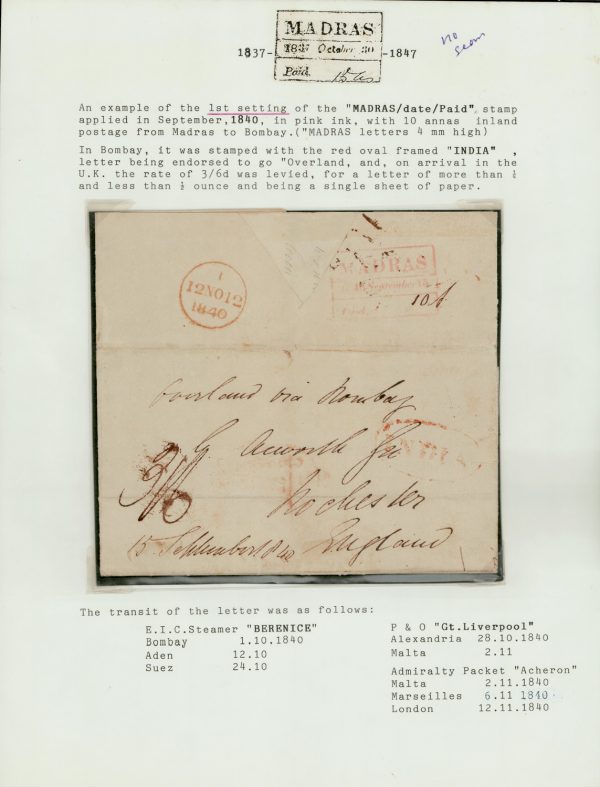 MADRAS
1837 October 30
Paid. 15 as
1837-
-1847
no
An example of the 1st setting of the "MADRAS/date/Paid" stamp
applied in September,1840, in pink ink, with 10 annas inland
postage from Madras to Bombay.("MADRAS letters 4 mm high)
In Bombay, it was stamped with the red oval framed "INDIA" ,
letter being endorsed to go "Overland, and, on arrival in the
U.K. the rate of 3/6d was levied, for a letter of more than ¼
and less than ½ ounce and being a single sheet of paper.
1
12NO12
1840
MADRAS
September
Paid.
10
Overland via Bombay
G Acworth
INDIA
3/6
Rochester
15 September 1840
England
The transit of the letter was as follows:
E.I.C.Steamer "BERENICE"
Bombay 1.10.1840
Aden 12.10
Suez 24.10
P & O "Gt.Liverpool"
Alexandria 28.10.1840
Malta 2.11
Admiralty Packet "Acheron"
Malta 2.11.1840
Marseilles 6.11 1840
London 12.11.1840